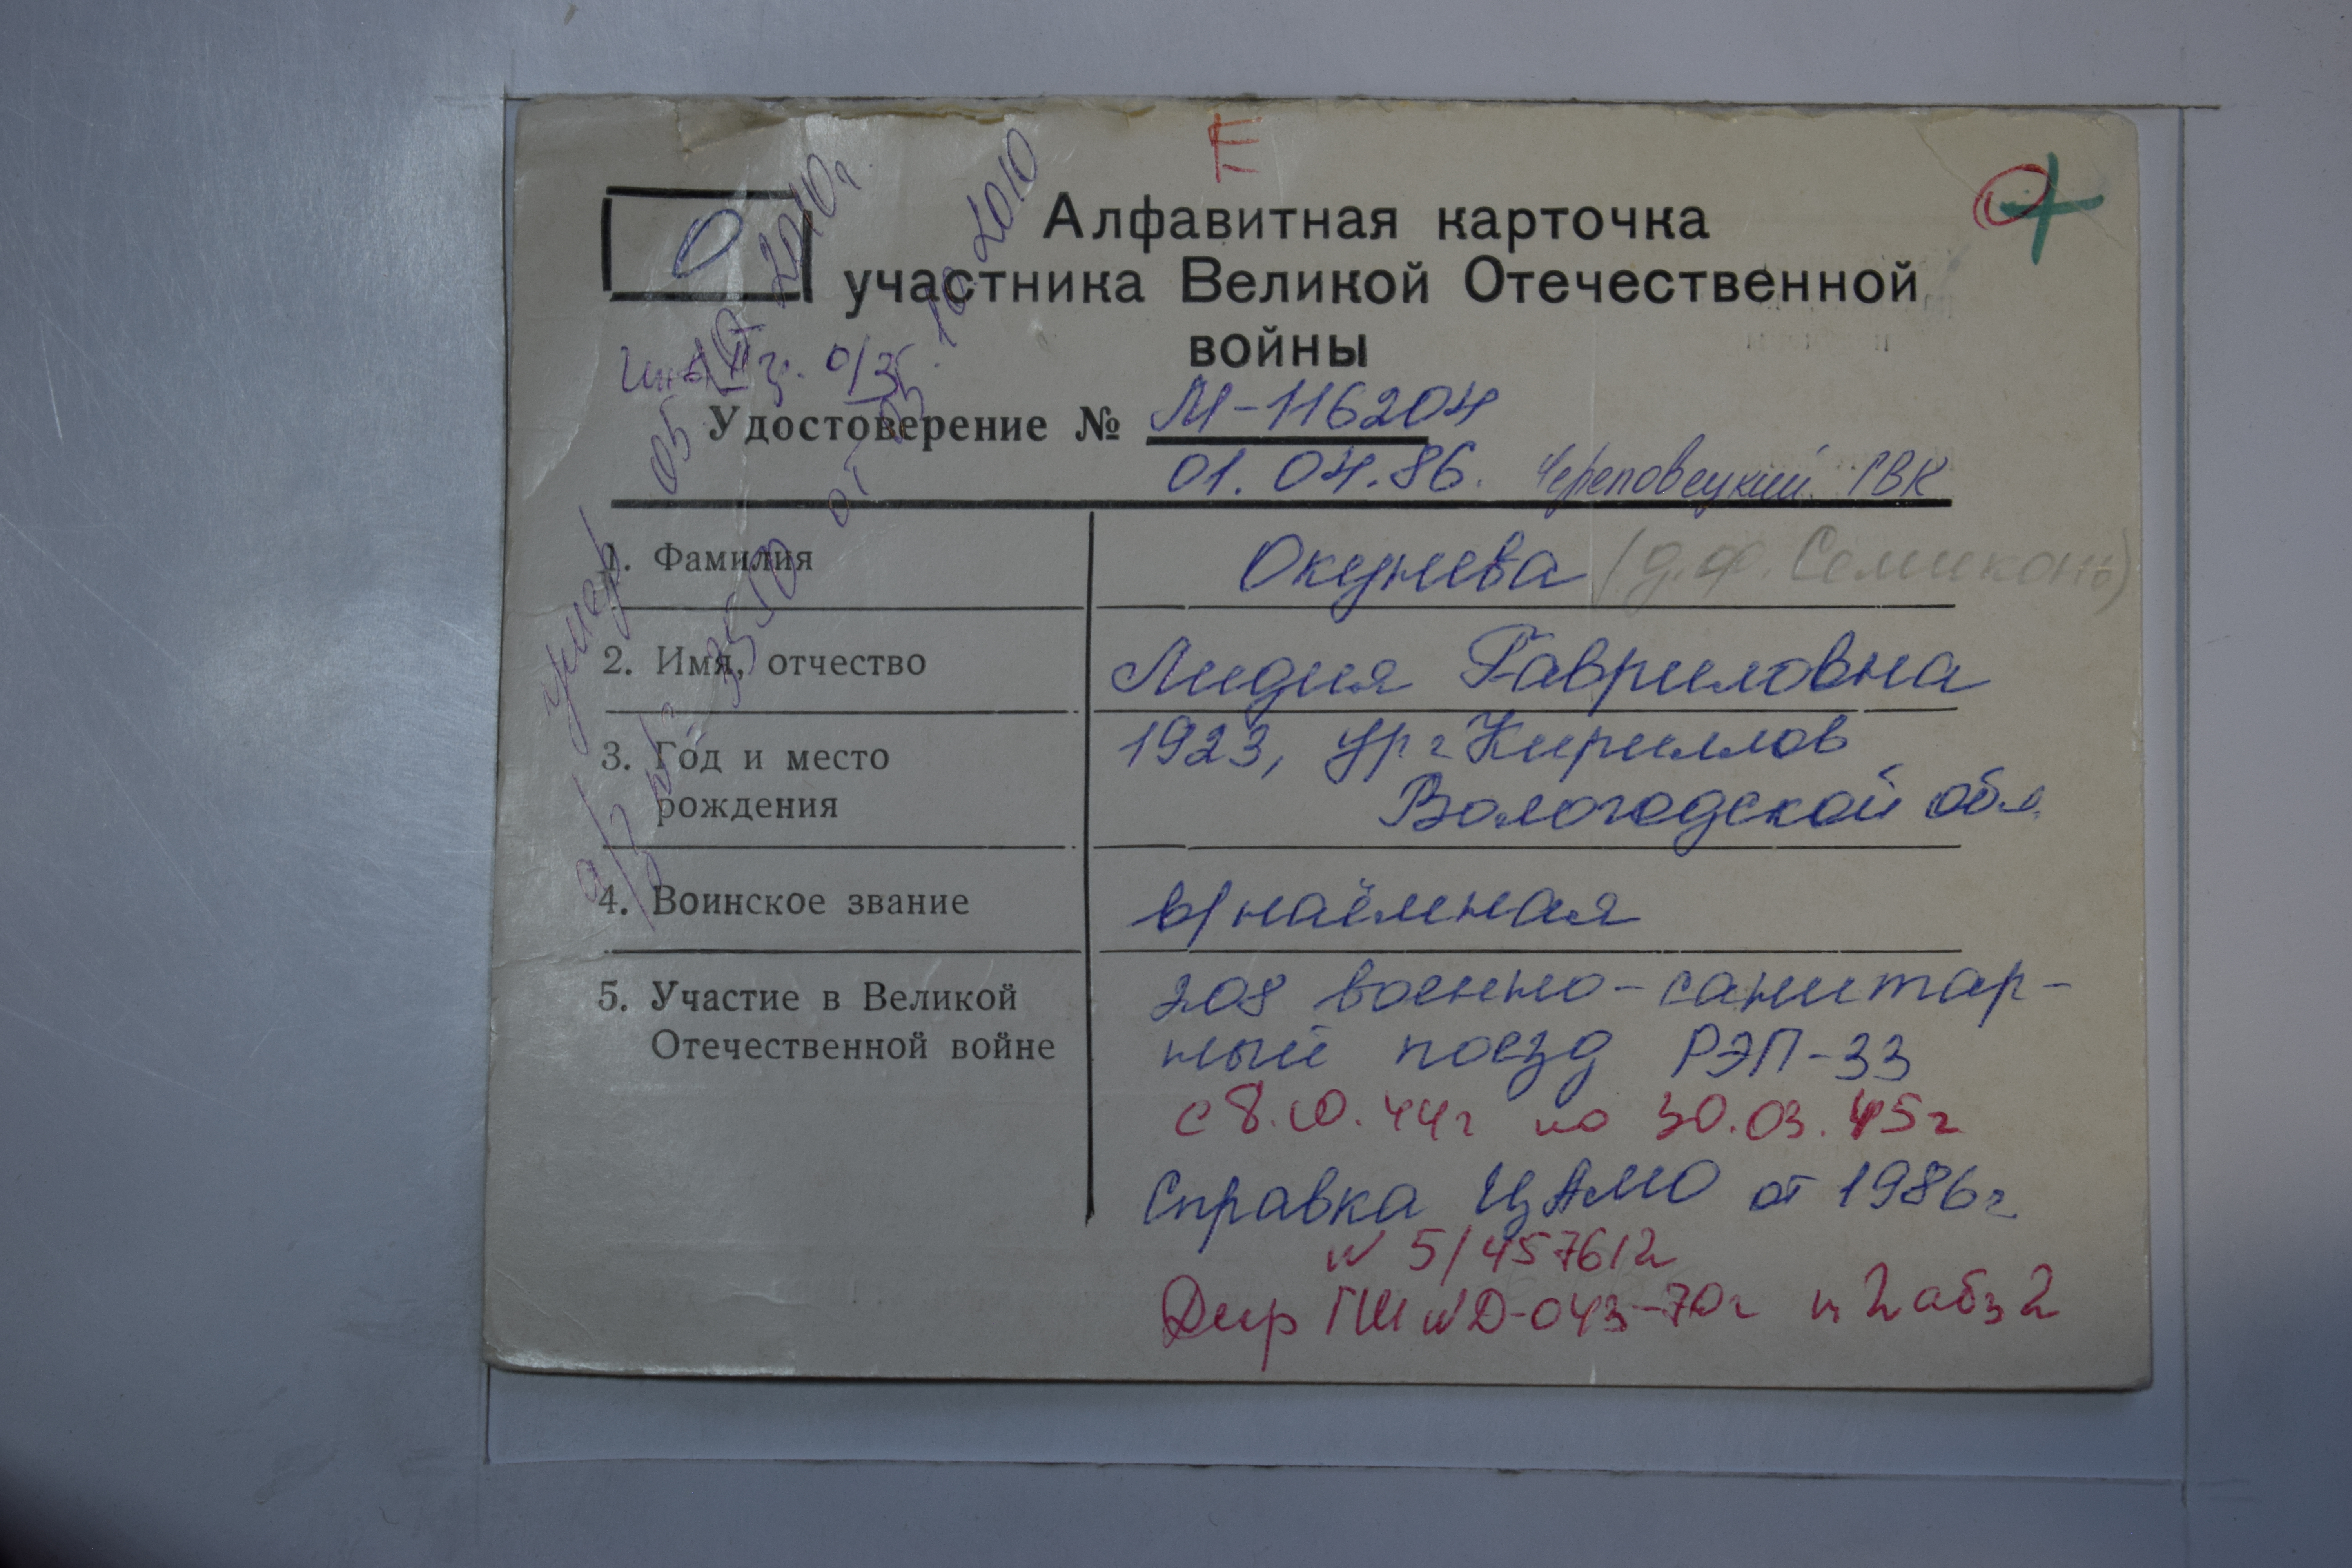 Е
О
О
Алфавитная карточка
участника Великой Отечественной
войны
Инв II гр. о/з
Удостоверение № М-116204
01.04.86. Череповецкий ГВК
умер 05 2010г.
а/з № 3550 от 05.10.2010
1. Фамилия Окунева (д.ф. Семиконь)
2. Имя, отчество Лидия Гавриловна
3. Год и место 1923, ур. г Кириллов
рождения Вологодской обл.
4. Воинское звание в/наёмная
5. Участие в Великой 208 военно-санитар-
Отечественной войне ный поезд РЭП-33
с 8.10.44г по 30.03.45г
Справка ЦАМО от 1986г
N 5/457612
Дир ГШ N Д-043-70г п 2 абз 2